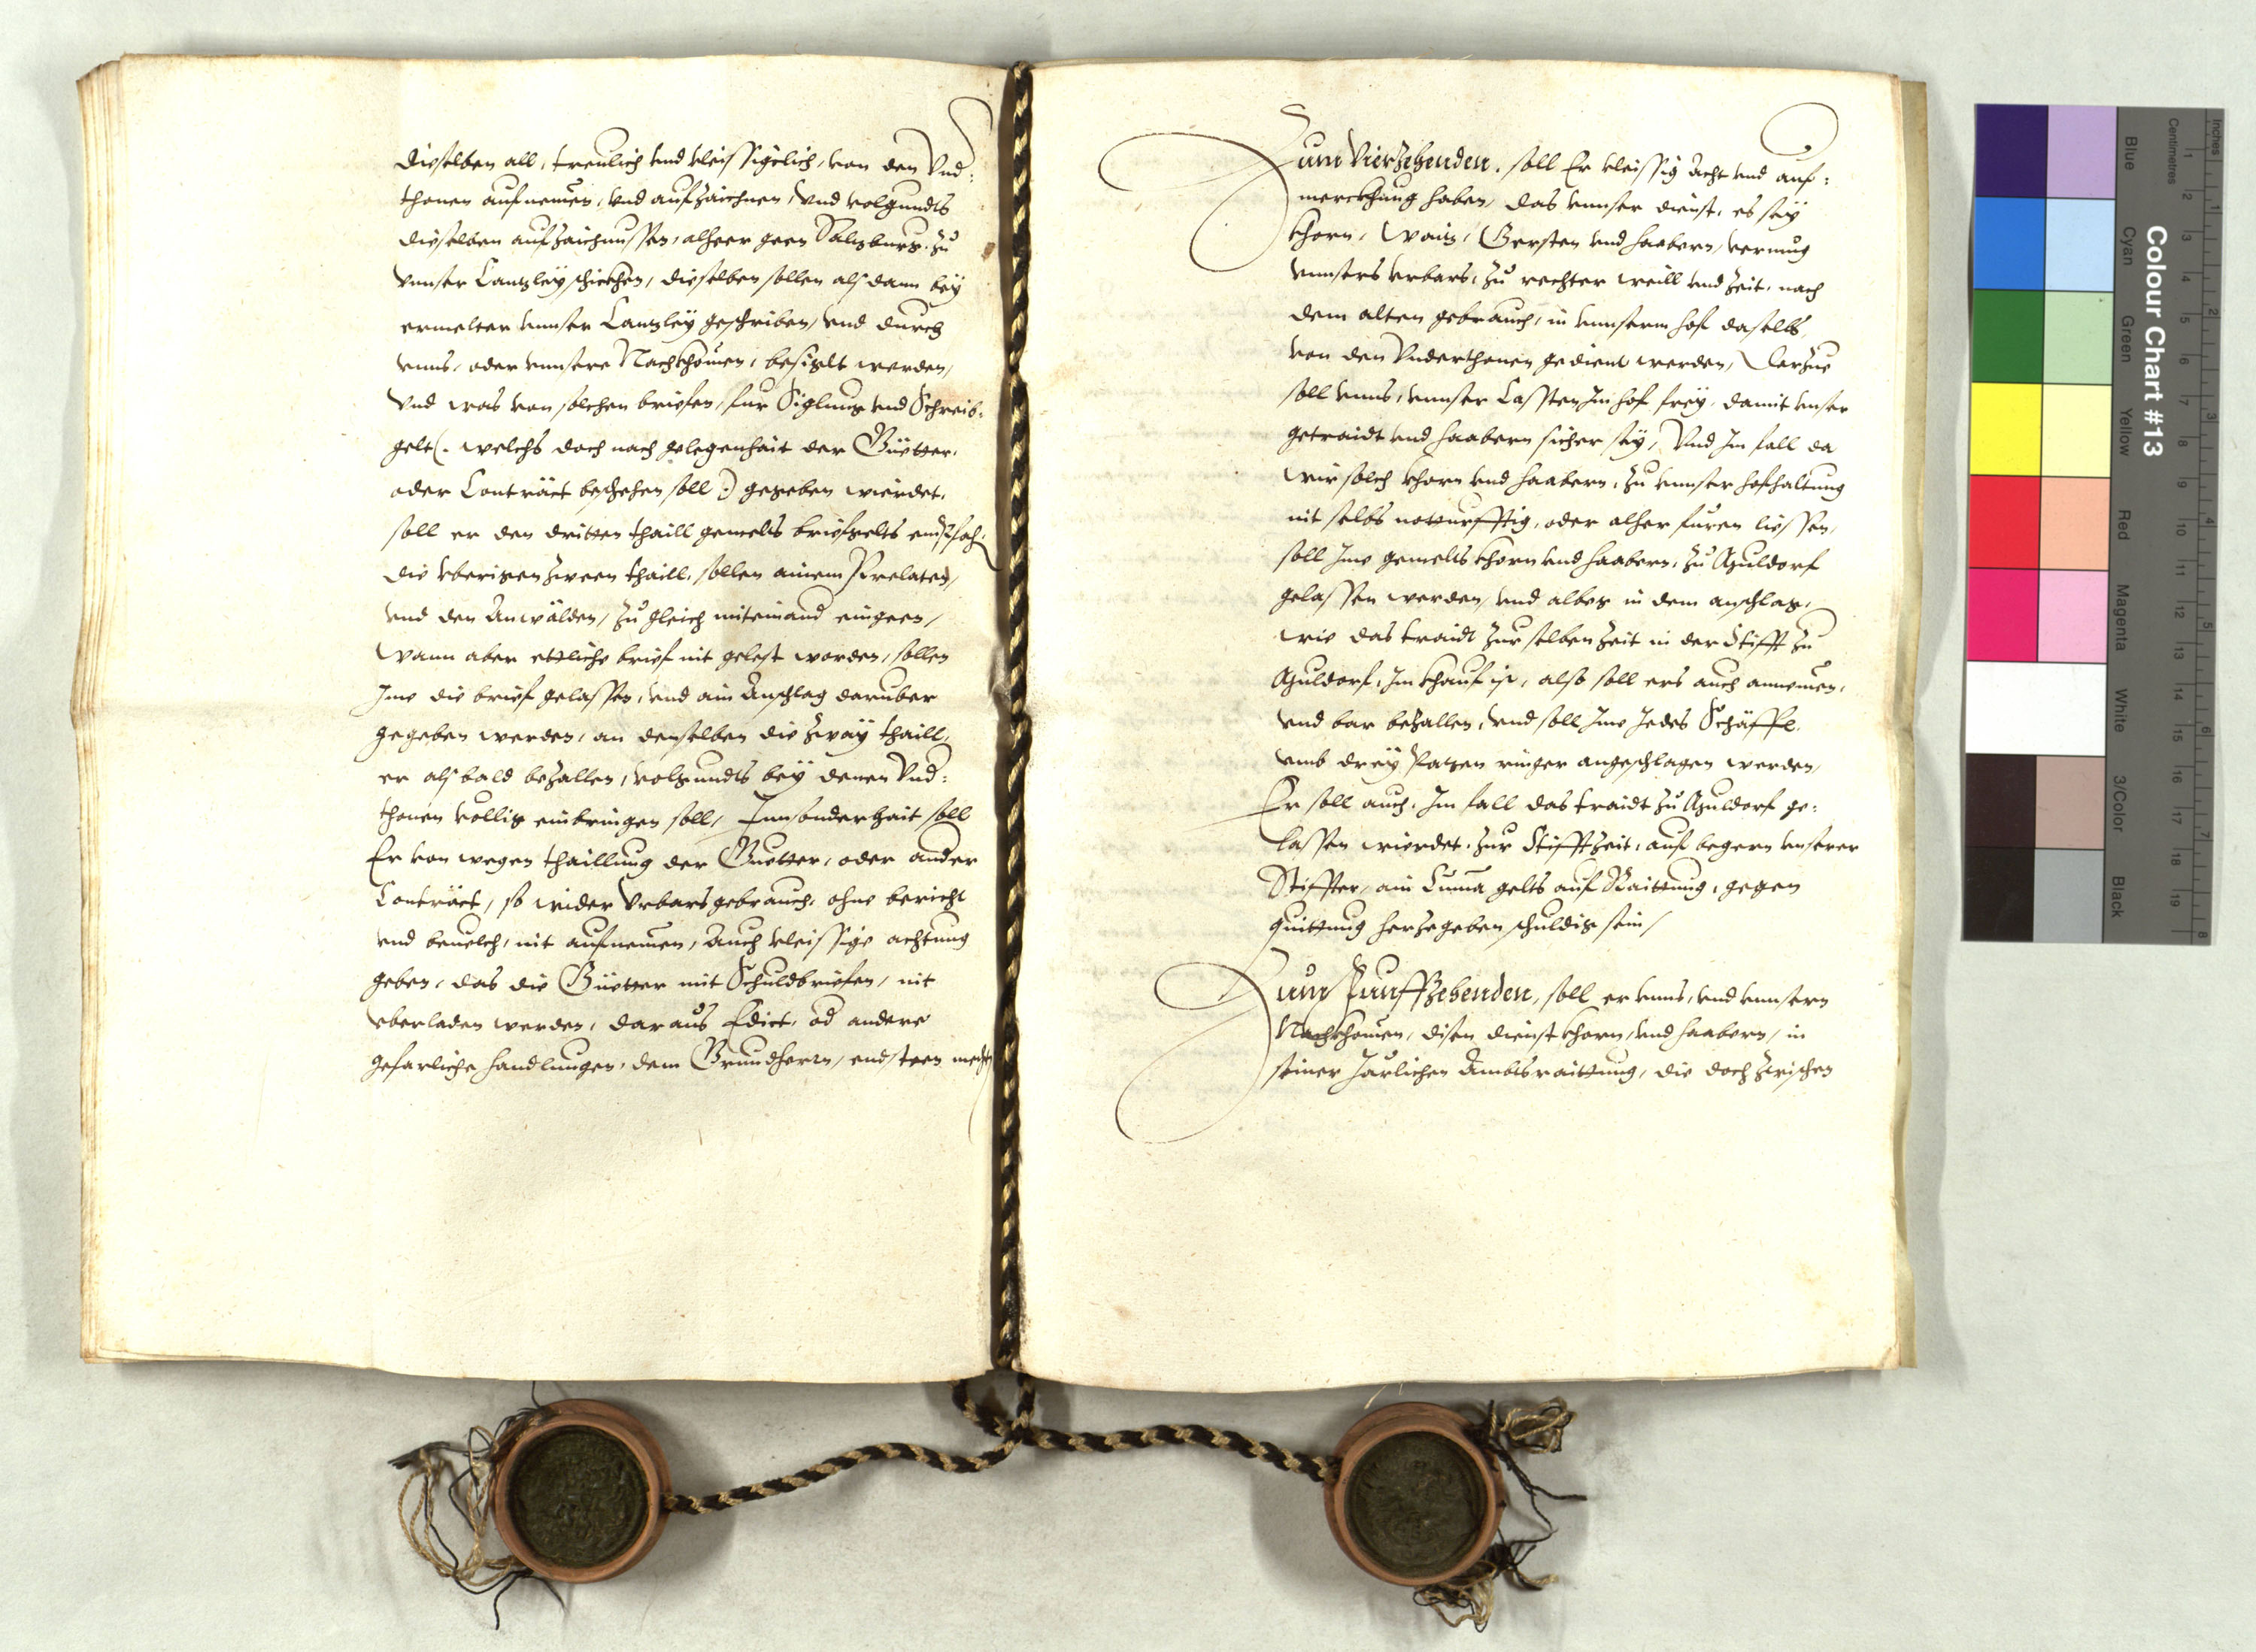 dieselben all, treulich vnd vleissigelich, von den Vnd:
thonen aufnemen, vnd aufzaichnen, vnd volgundts
dieselben aufzaichnussen, alheer geen Saltzburg, zu
vnnser Cantzleÿ schickhen, dieselben sollen alß dann beÿ
ermelter vnnser Cantzleÿ geschriben, vnd durch
vnns, oder vnnsere Nachkhomen, besiglt werden,
Vnd was von solchen briefen, fur Siglung vnd Schreib:
gelt (. welchs doch nach gelegenhait der Güetter,
oder Conträct beschehen soll .) gegeben wierdet,
soll er den dritten thaill gemelts briefgelts empfah,
die vberigen zween thaill, sollen ainem Prelaten,
vnd den Anwälden, zu gleich miteinand eingeen,
Wann aber ettliche brief nit gelest worden, sollen
Ime die brief gelassen, vnd ain Anschlag daruber
gegeben werden, an denselben die zwaÿ thaill,
er alßbald bezallen, volgundts beÿ denen Vnd:
thonen vollig einbringen soll, Innsonderhait soll
Er von wegen thaillung der Guetter, oder ander
Conträct, so wider Vrbarsgebrauch, ohne bericht
vnd beuelch, nit aufnemen, Auch vleissige achtung
geben, das die Güetter mit Schuldbriefen, nit
vberladen werden, daraus Edict, od andere
gefarliche handlungen, dem Grundherrn, endsteen mecht
Zum Vierzehenden, soll Er vleissig Acht vnd auf:
merckhung haben, das vnnser dienst, es seÿ
khorn, Waitz, Gersten vnd haabern, vermug
vnnsers vrbars, zu rechter weill vnd zeit, nach
dem alten gebrauch, in vnnserm hof daselbs,
von den Vnderthonen gedient werden, Darzue
soll vnns, vnnser Cassten Im hof freÿ, damit vnser
getraidt vnd haabern sicher seÿ, Vnd Im fall da
Wir solch khorn vnd haabern, zu vnnser hofhaltung
nit selbs notturfftig, oder alher furen liessen,
soll Ime gemelts khorn vnd haabern, zu Muldorf
gelassen werden, vnd albeg in dem anschlag,
wie das traidt zur selben zeit in der Stifft zu
Muldorf, Im khauf ist, also soll ers auch annemen,
vnd bar bezallen, vnd soll Ime Jedes Schäffl,
vmb dreÿ Patzen ringer angeschlagen werden,
Er soll auch, Im fall das traidt zu Muldorf ge:
lassen wierdet, zur Stifftzeit, auf begern vnserer
Stiffter, ain Suma gelts auf Raittung, gegen
quittung herzegeben schuldig sein,
Zum Funffzehenden, soll er vnns, vnd vnnsern
Nachkhomen, disen dienst khorn, vnd haabern, in
seiner Järlichen Ambtsraittung, die doch zwischen
Colour Chart #13
Blue
Cyan
Green
Yellow
Red
Magenta
White
3/Color
Black
Centimetres
1
2
3
4
5
6
7
8
9
10
11
12
13
14
15
16
17
18
19
Inches
1
2
3
4
5
6
7
8